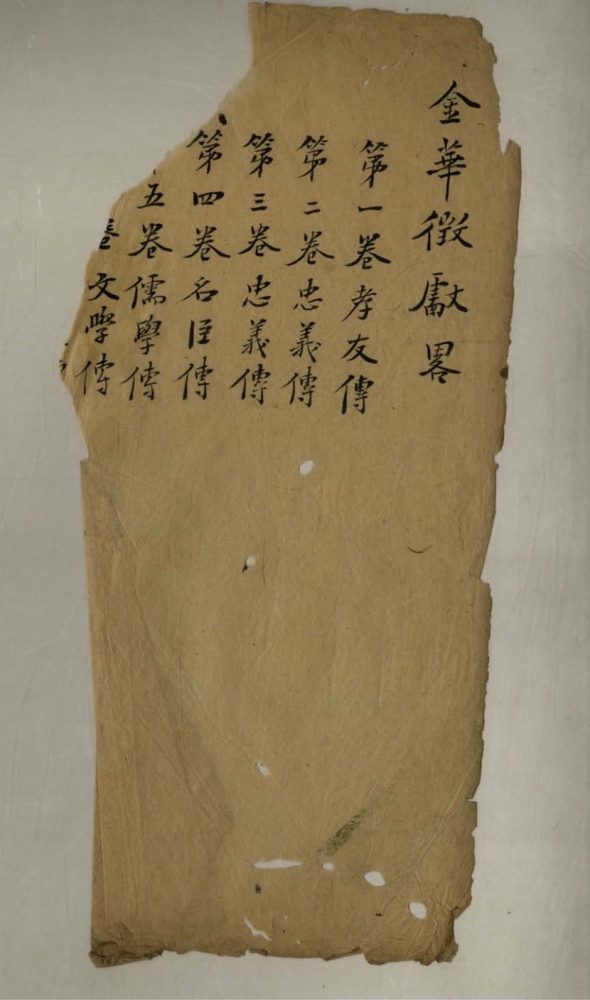 金華徵獻畧
第一卷孝友傳
第二卷忠義傳
第三卷忠義傳
第四卷名臣傳
五卷儒學傳
卷文學傳